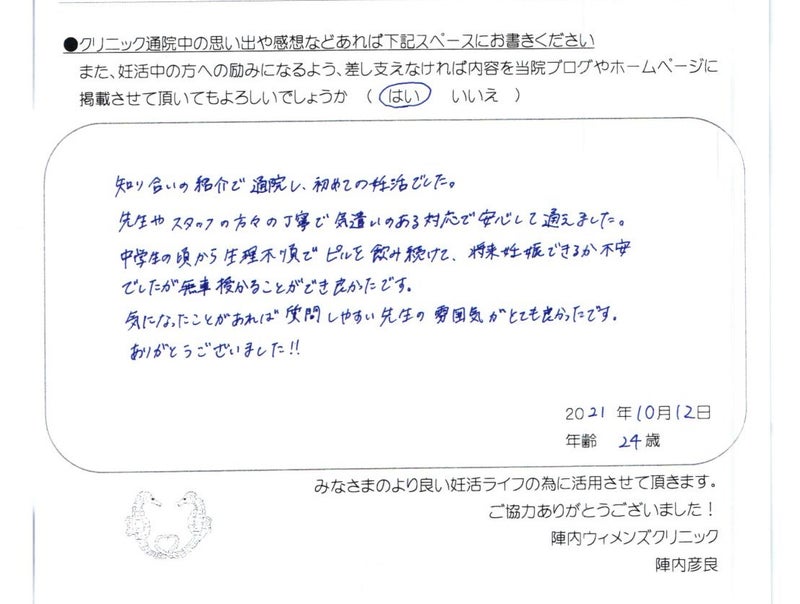 ●クリニック通院中の思い出や感想などあれば下記スペースにお書きください
また、妊活中の方への励みになるよう、差し支えなければ内容を当院ブログやホームページに
掲載させて頂いてもよろしいでしょうか （ はい いいえ ）
知り合いの紹介で通院し、初めての妊活でした。
先生やスタッフの方々の丁寧で気遣いのある対応で安心して通えました。
中学生の頃から生理不順でピルを飲み続けて、将来妊娠できるか不安
でしたが無事授かることができ良かったです。
気になったことがあれば質問しやすい先生の雰囲気がとても良かったです。
ありがとうございました!!
2021 年 10月 12日
年齢 24 歳
みなさまのより良い妊活ライフの為に活用させて頂きます。
ご協力ありがとうございました！
陣内ウィメンズクリニック
陣内彦良